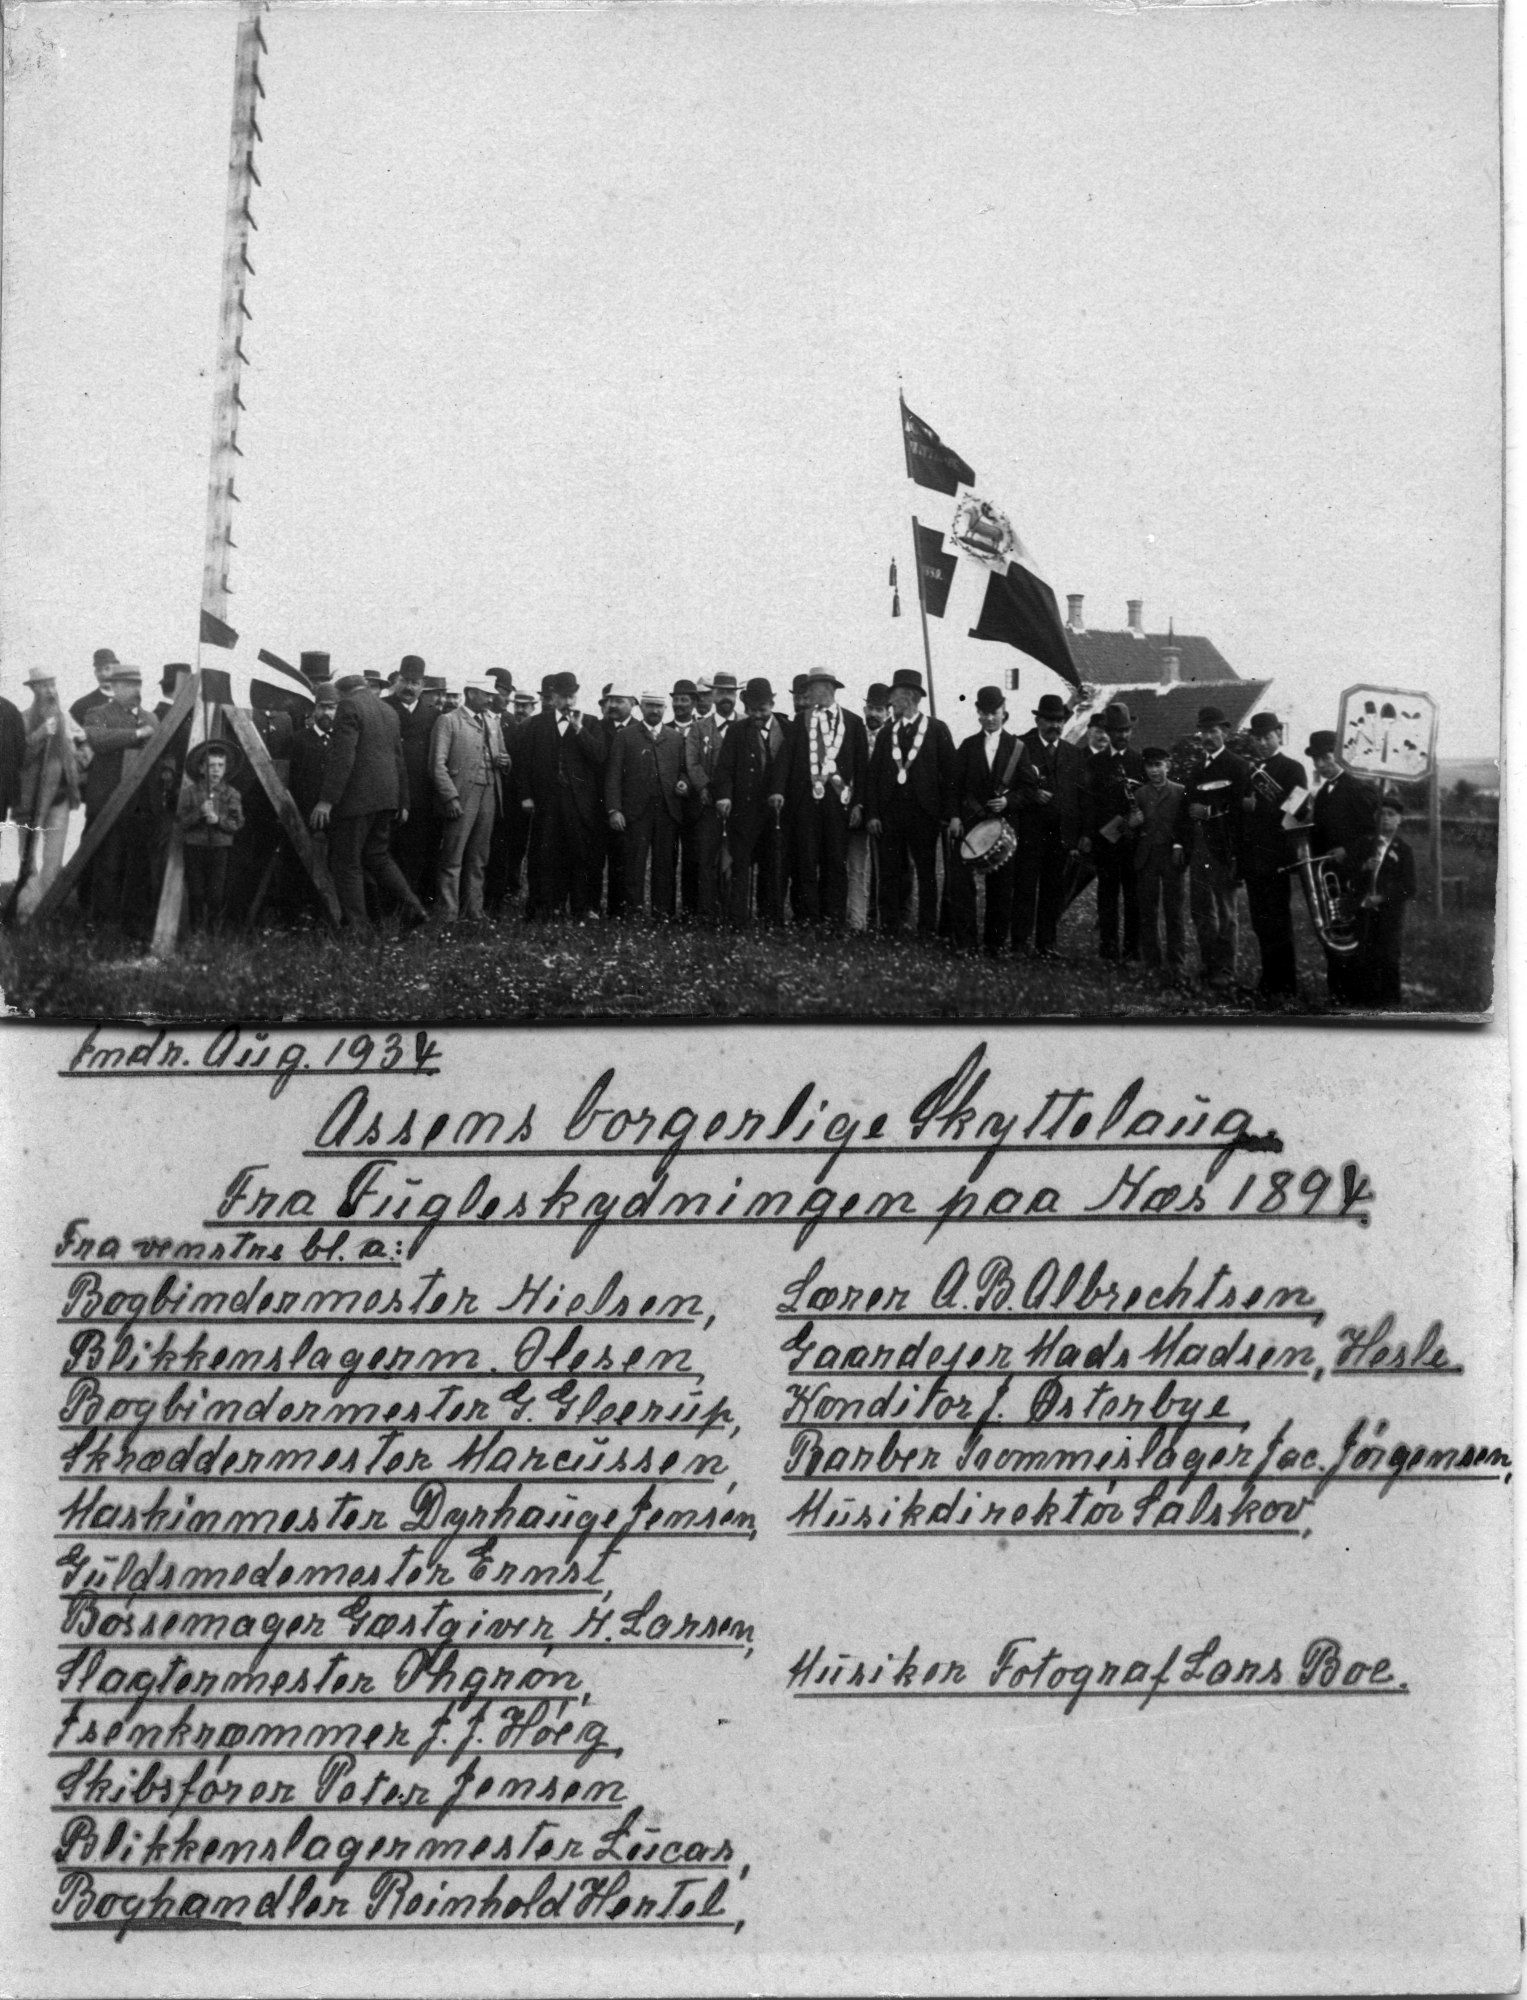 Indr. Aug. 1934
Assens borgerlige Skyttelaug.
Fra Fugleskydningen paa Næs 1894
Fra venstre bl. a.:
Bogbindermester Nielsen,
Blikkenslagerm. Olesen,
Bogbindermester G. Gleerup,
Skræddermester Marcussen,
Maskinmester Dyrhauge Jensen,
Guldsmedemester Ernst,
Bøssemager Gæstgiver H. Larsen,
Slagtermester Ohgrøn,
Isenkræmmer J. J. Høeg,
Skibsfører Peter Jensen
Blikkenslagermester Lucas,
Boghandler Reinhold Hertel,
Lærer A. B. Albrechtsen,
Gaardejer Mads Madsen, Hesle
Konditor J. Østerbye,
Barber Trommeslager Jac. Jørgensen,
Musikdirektør Salskov,
Musiker Fotograf Lars Boe.